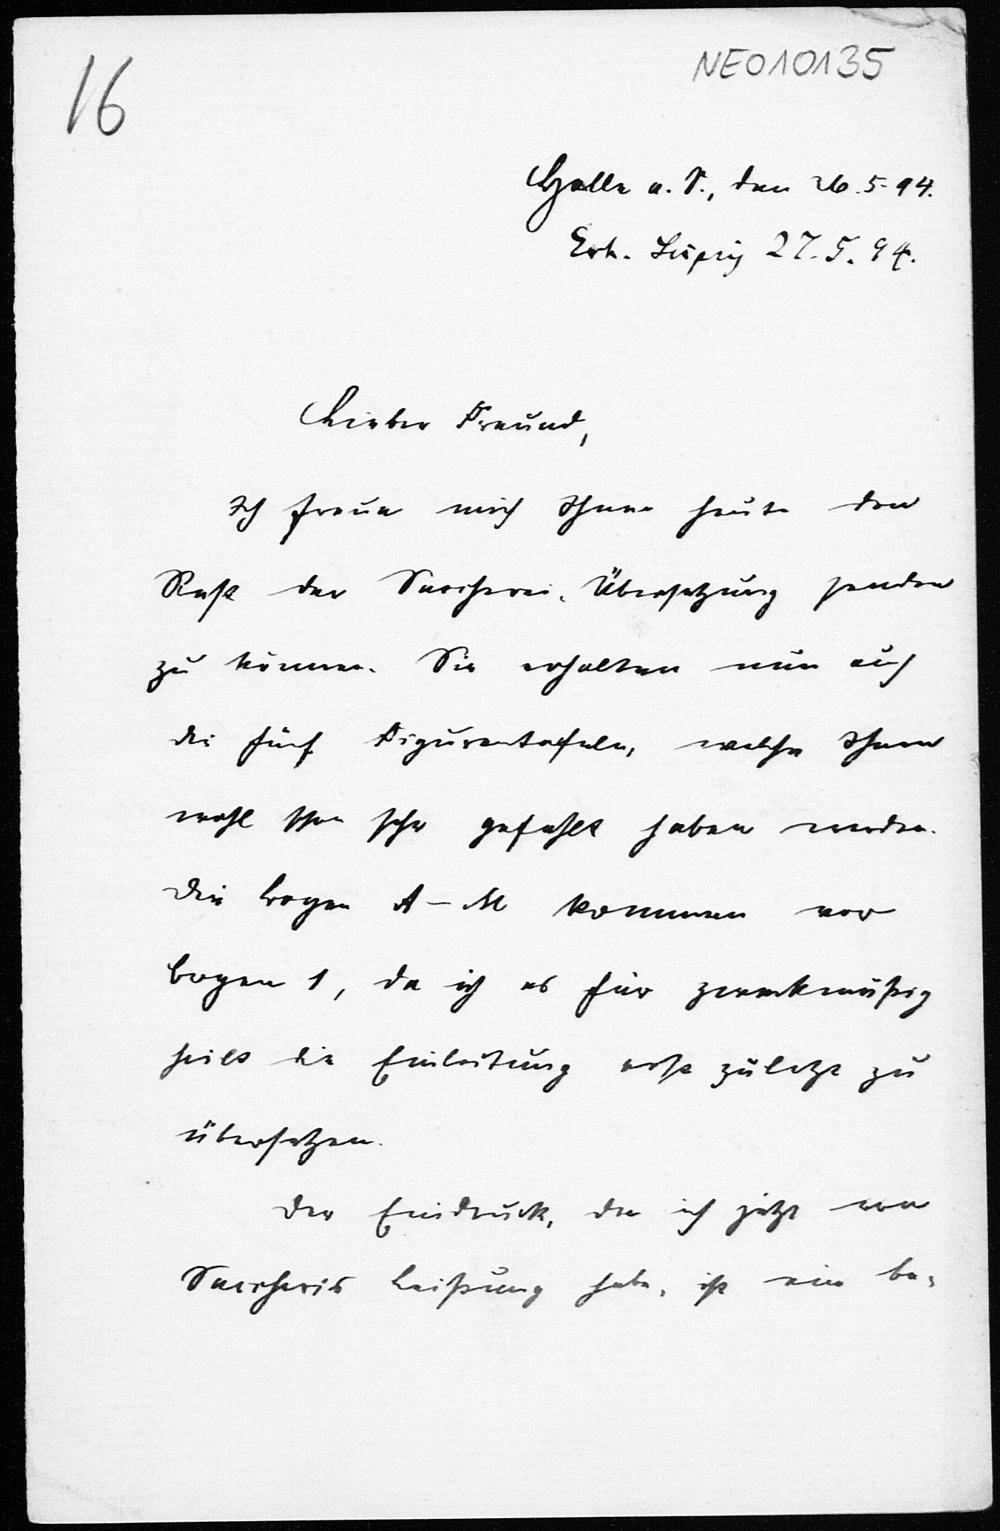 16
NE010135
Halle a. S., den 26.5.94.
Erh. Leipzig 27.5.94.
Lieber Freund,
Ich freue mich Ihnen heute den
Rest der Saccheri-Übersetzung senden
zu können. Sie erhalten nun auch
die fünf Figurentafeln, welche Ihnen
wohl schon sehr gefehlt haben werden.
Die Bogen A-M kommen vor
Bogen 1, da ich es für zweckmäßig
hielt die Einleitung erst zuletzt zu
übersetzen.
Der Eindruck, den ich jetzt von
Saccheris Leistung habe, ist ein be-